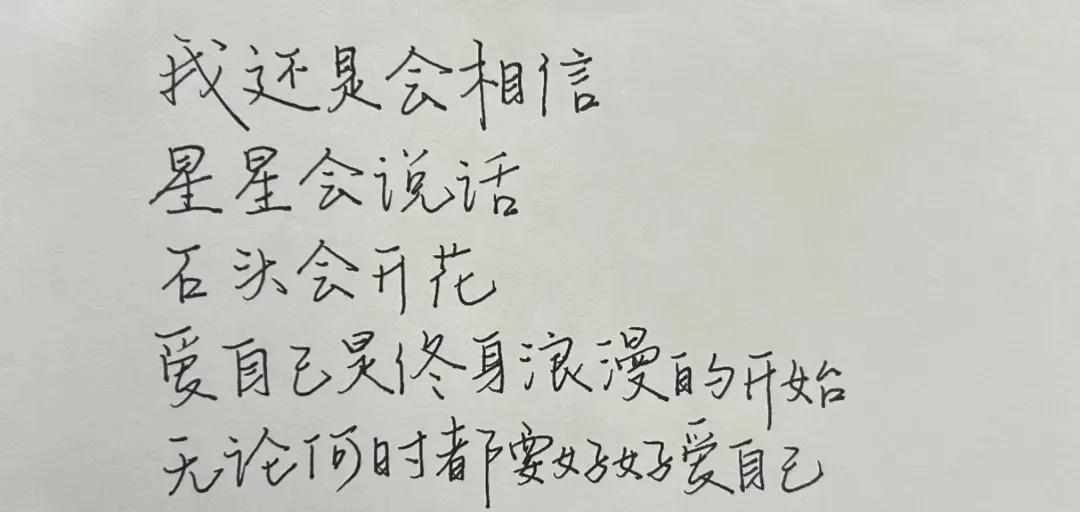 我还是会相信
星星会说话
石头会开花
爱自己是终身浪漫的开始
无论何时都要好好爱自己